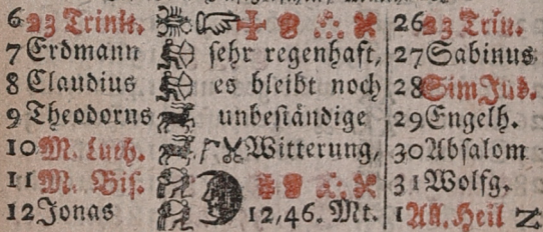 6 23 Trinit. 26 23 Trin.
7 Erdmann sehr regenhaft, 27 Sabinus
8 Claudius es bleibt noch 28 Sim Jud.
9 Theodorus unbeständige 29 Engelh.
10 M. Luth. Witterung, 30 Absalom
11 M. Bis. 31 Wolfg.
12 Jonas 12,46. Mt. 1 All. Heil